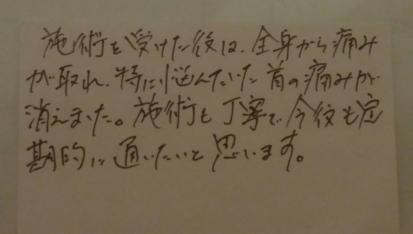 施術を受けた後は、全身から痛み
が取れ、特に悩んでいた首の痛みが
消えました。施術も丁寧で、今後も定
期的に通いたいと思います。